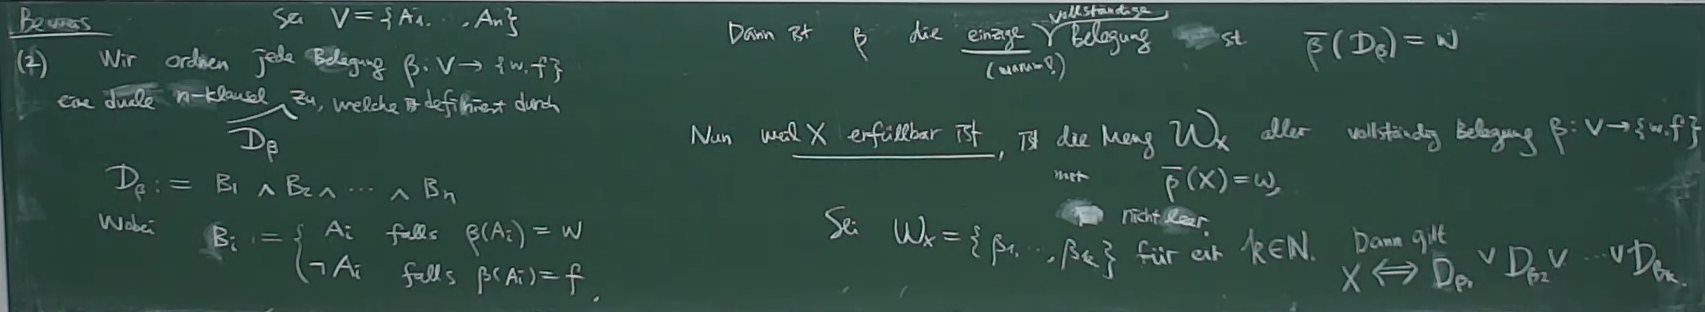 Beweis Sei V = {A₁, ..., Aₙ}
(2) Wir ordnen jede Belegung β: V → {w, f}
eine duale n-Klausel zu, welche ist definiert durch
D_β
D_β := B₁ ∧ B₂ ∧ ⋯ ∧ Bₙ
Wobei B_i := { A_i falls β(A_i) = w
¬A_i falls β(A_i) = f.
Dann ist β die einzige vollständige Belegung st β̄(D_β) = w
(warum?)
Nun weil X erfüllbar ist, ist die Meng W_X aller vollständig Belegung β: V → {w, f}
mit β̄(X) = w,
nicht leer.
Sei W_X = {β₁, ..., β_k} für ein k ∈ ℕ. Dann gilt
X ⟺ D_β₁ ∨ D_β₂ ∨ ⋯ ∨ D_β_k.